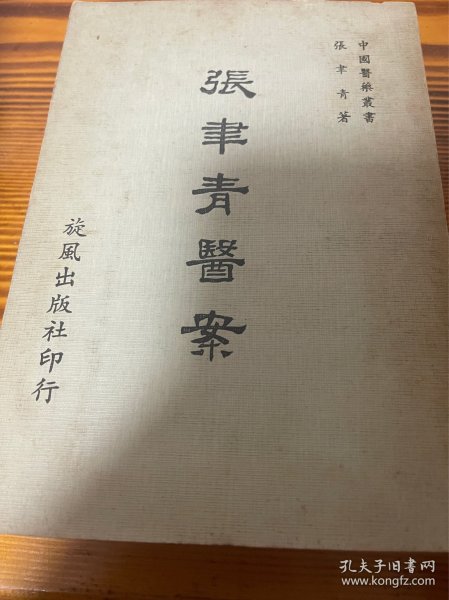 中國醫藥叢書
張聿青著
張聿青醫案
旋風出版社印行
孔夫子旧书网
www.kongfz.com